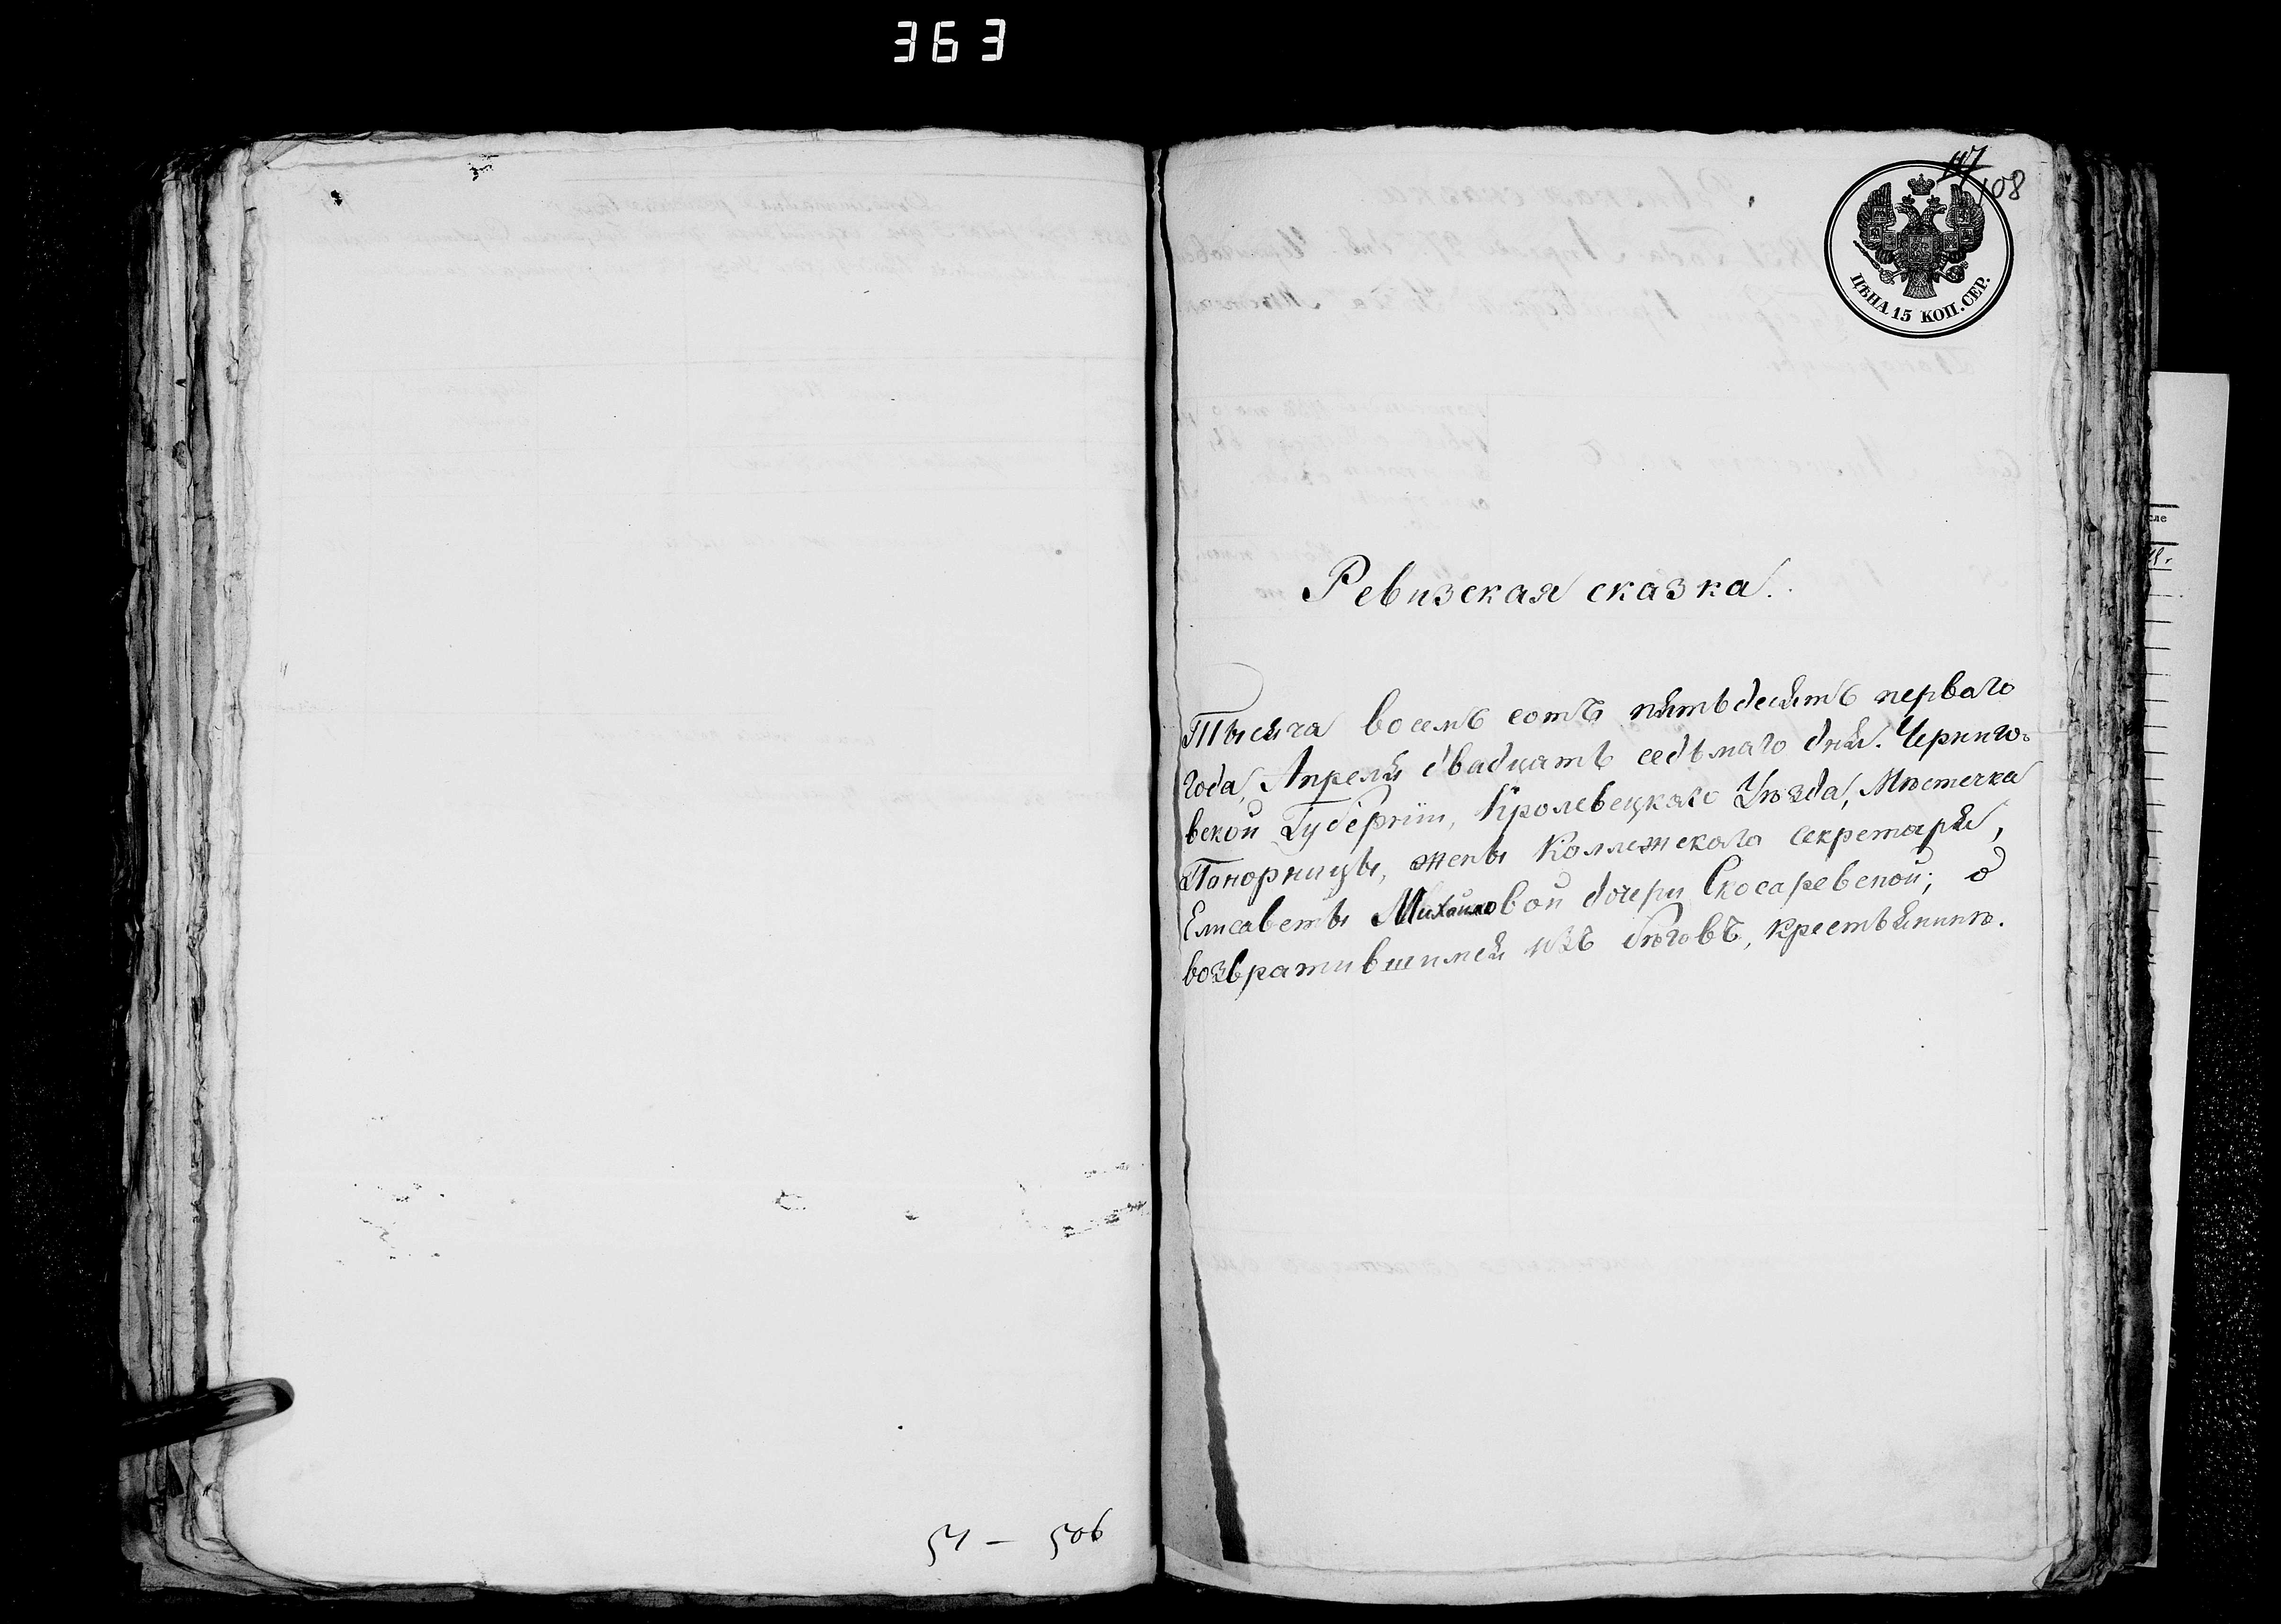 363
108
ЦѢНА 15 КОП. СЕР.
Ревизская сказка.
Тысяча восемъ сотъ пятьдесятъ перваго
года, Апреля двадцать седьмаго дня. Чернигов-
ской Губерніи, Кролевецкаго Уѣзда, Мѣстечка
Понорницы, жены Коллежскаго секретаря,
Елисаветы Михайловой дочери Скосаревской; о
возвратившимся изъ бѣговъ, крестьянинѣ.
506